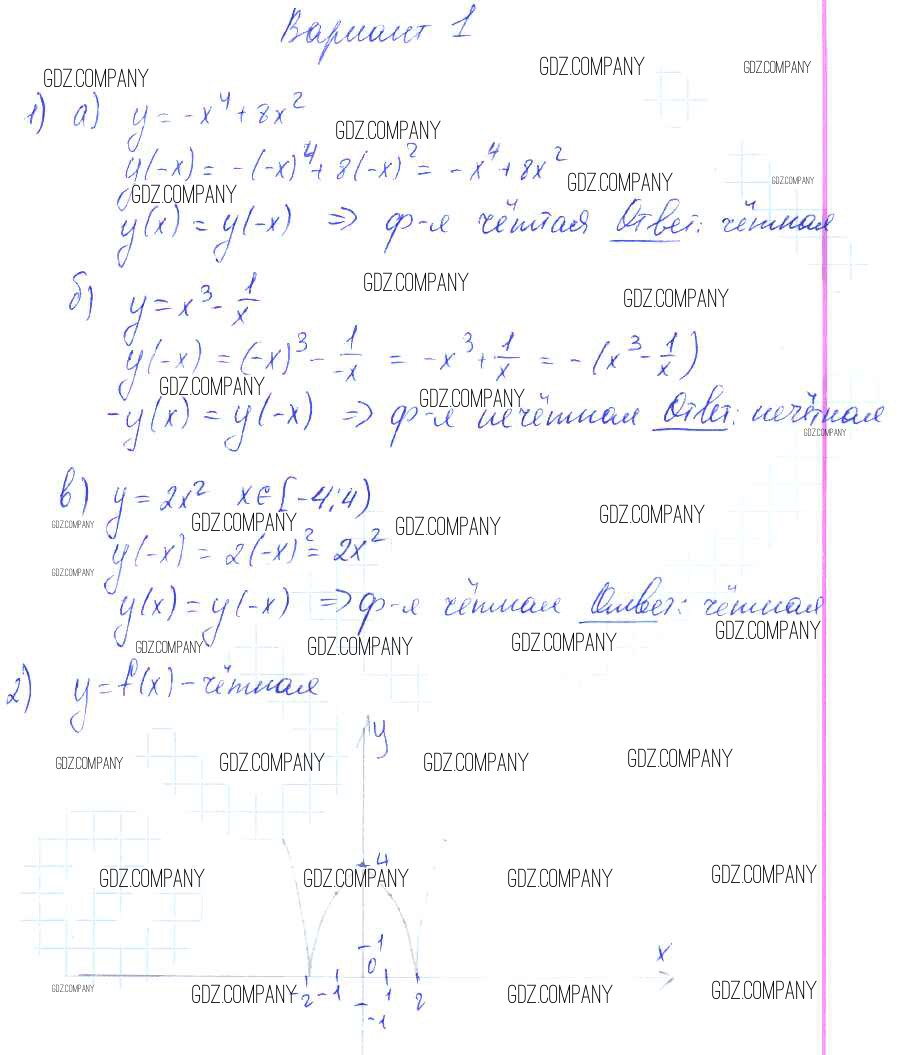 Вариант 1
GDZ.COMPANY GDZ.COMPANY GDZ.COMPANY
1) а) y = -x⁴ + 8x²
GDZ.COMPANY
y(-x) = -(-x)⁴ + 8(-x)² = -x⁴ + 8x²
GDZ.COMPANY GDZ.COMPANY GDZ.COMPANY
y(x) = y(-x) => ф-я чётная Ответ: чётная
GDZ.COMPANY GDZ.COMPANY
б) y = x³ - 1/x
y(-x) = (-x)³ - 1/-x = -x³ + 1/x = -(x³ - 1/x)
GDZ.COMPANY GDZ.COMPANY
-y(x) = y(-x) => ф-я нечётная Ответ: нечётная
GDZ.COMPANY
в) y = 2x² x∈[-4;4)
GDZ.COMPANY GDZ.COMPANY GDZ.COMPANY GDZ.COMPANY
y(-x) = 2(-x)² = 2x²
GDZ.COMPANY
y(x) = y(-x) => ф-я чётная Ответ: чётная
GDZ.COMPANY GDZ.COMPANY GDZ.COMPANY GDZ.COMPANY
2) y = f(x) - чётная
y
GDZ.COMPANY GDZ.COMPANY GDZ.COMPANY GDZ.COMPANY
4
GDZ.COMPANY GDZ.COMPANY GDZ.COMPANY GDZ.COMPANY
1
0 x
GDZ.COMPANY GDZ.COMPANY GDZ.COMPANY GDZ.COMPANY
-2 -1 1 2
-1